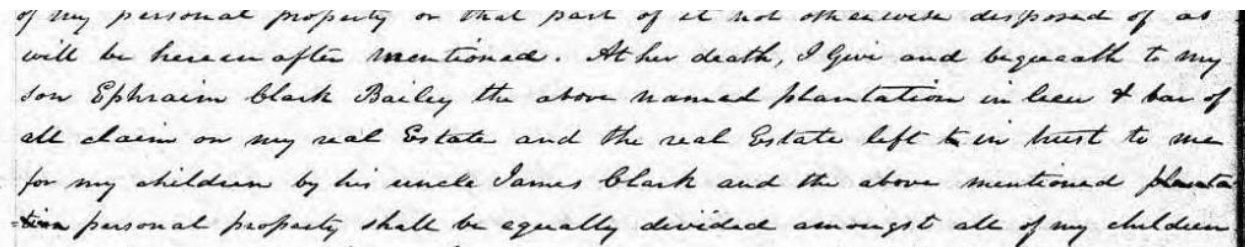 of my personal property or that part of it not otherwise disposed of as
will be hereinafter mentioned. At her death, I Give and bequeath to my
son Ephraim Clark Bailey the above named plantation in lieu & bar of
all claim on my real Estate and the real Estate left to in trust to me
for my children by his uncle James Clark and the above mentioned planta
=tion personal property shall be equally divided amongst all of my children